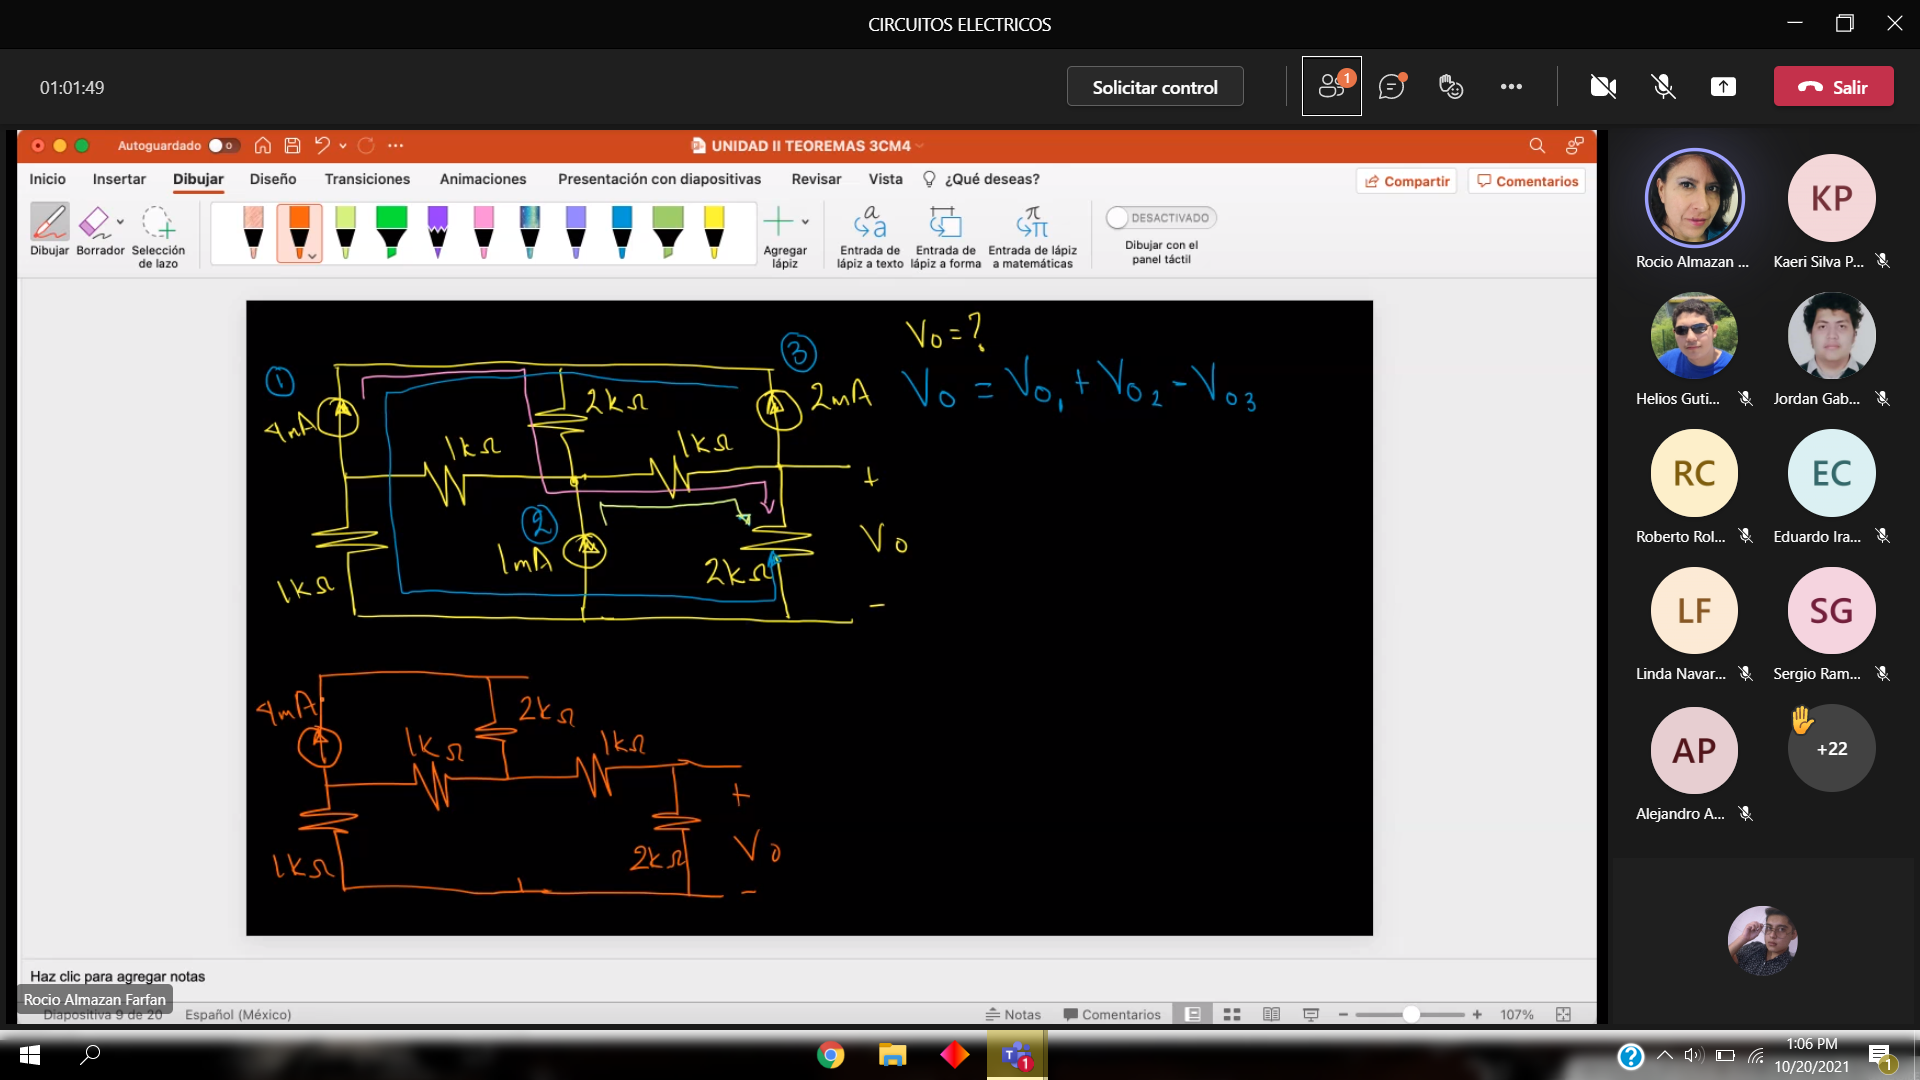 CIRCUITOS ELECTRICOS
01:01:49
Solicitar control
1
Salir
Autoguardado
UNIDAD II TEOREMAS 3CM4
Inicio Insertar Dibujar Diseño Transiciones Animaciones Presentación con diapositivas Revisar Vista ¿Qué deseas?
Compartir Comentarios
Dibujar
Borrador
Selección de lazo
Agregar lápiz
Entrada de lápiz a texto
Entrada de lápiz a forma
Entrada de lápiz a matemáticas
DESACTIVADO
Dibujar con el panel táctil
Vo = ?
Vo = Vo1 + Vo2 - Vo3
1
3
4mA
2kΩ
2mA
1kΩ
1kΩ
+
2
Vo
1mA
2kΩ
1kΩ
-
4mA
2kΩ
1kΩ
1kΩ
+
Vo
1kΩ
2kΩ
-
Haz clic para agregar notas
Rocio Almazan Farfan
Diapositiva 9 de 20
Español (México)
Notas
Comentarios
107%
Rocio Almazan ...
KP
Kaeri Silva P...
Helios Guti...
Jordan Gab...
RC
Roberto Rol...
EC
Eduardo Ira...
LF
Linda Navar...
SG
Sergio Ram...
AP
Alejandro A...
+22
1
1:06 PM
10/20/2021
1